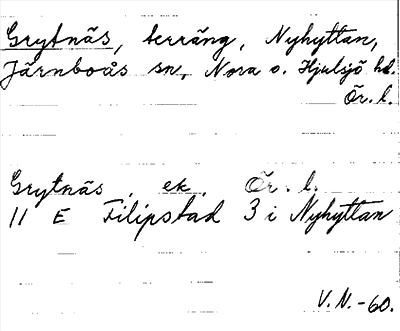 Grytnäs, terräng, Nyhyttan,
Järnboås sn, Nora o. Hjulsjö hd.
Ör. l.
Grytnäs, ek. Ör. l.
11 E Filipstad 3 i Nyhyttan
V. N. -60.